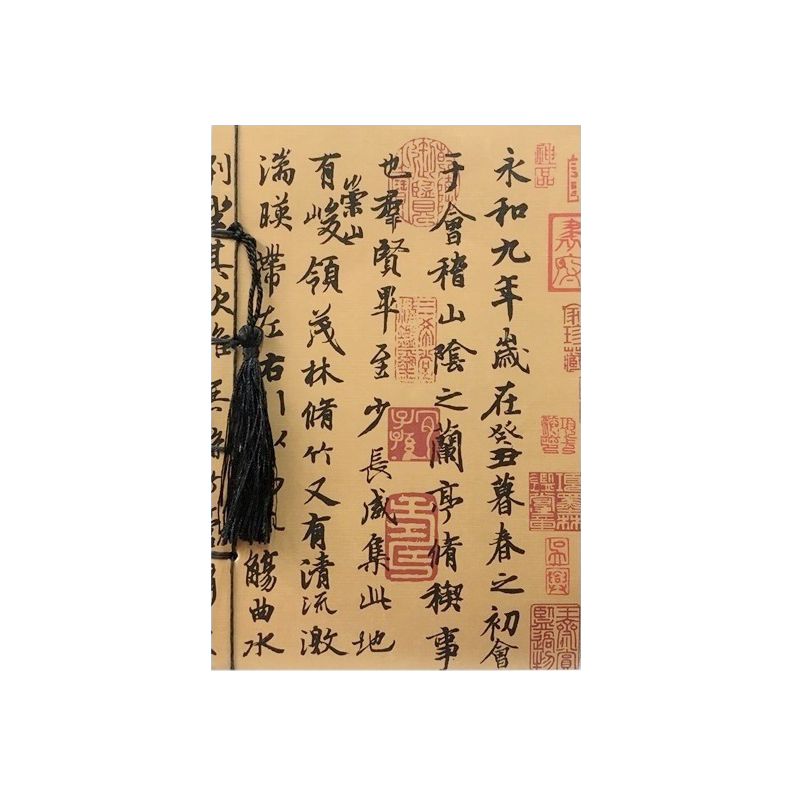 永和九年歲在癸丑暮春之初會
于會稽山陰之蘭亭脩稧事
也羣賢畢至少長咸集此地
有崇山峻領茂林脩竹又有清流激
湍暎帶左右引以觴曲水
列坐其次雖無絲竹
家珍藏